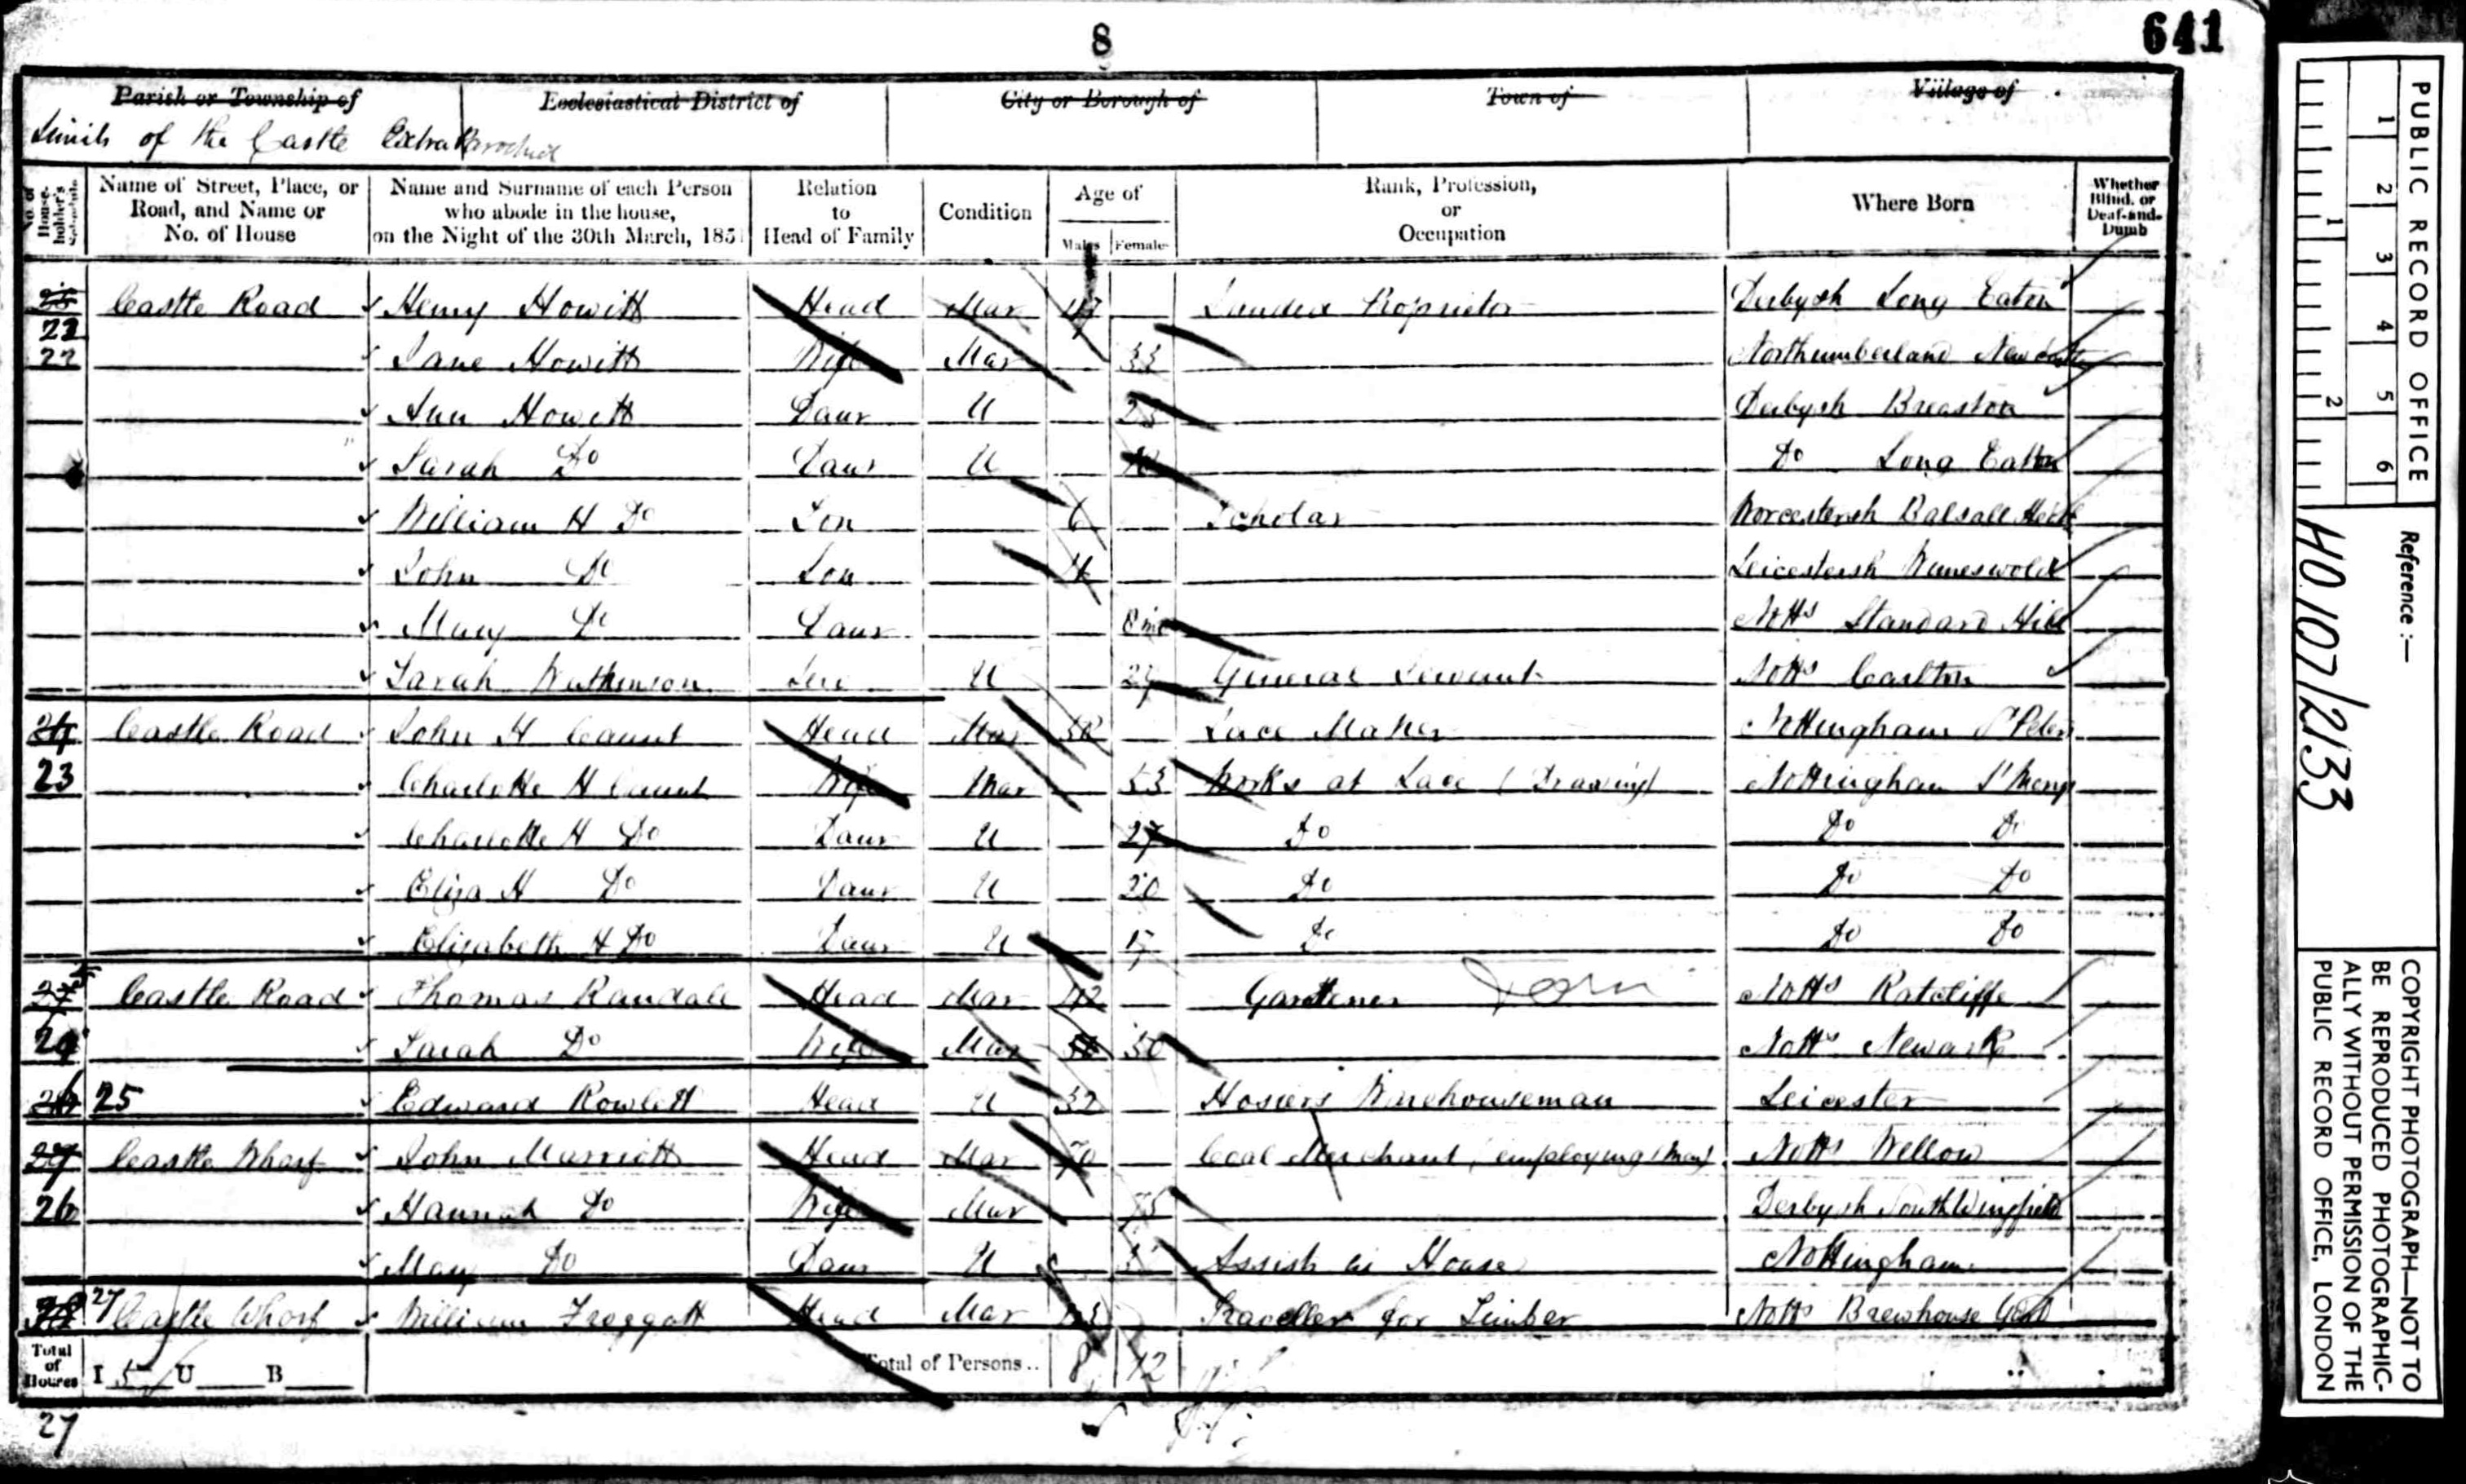 8
641
Parish or Township of Ecclesiastical District of City or Borough of Town of Village of
Limits of the Castle Extra Parochial
No. of House-holder's Schedule Name of Street, Place, or Road, and Name or No. of House Name and Surname of each Person who abode in the house, on the Night of the 30th March, 1851 Relation to Head of Family Condition Age of Males Females Rank, Profession, or Occupation Where Born Whether Blind, or Deaf-and-Dumb
22 Castle Road Henry Howitt Head Mar 47 Landed Proprietor Derbysh Long Eaton
22 Jane Howitt Wife Mar 33 Northumberland Newcastle
Ann Howitt Daur U 23 Derbysh Breaston
Sarah Do Daur U Do Long Eaton
William H Do Son 6 Scholar Worcestersh Balsall Heath
John Do Son 4 Leicestersh Wimeswold
Mary Do Daur 8 mo Notts Standard Hill
Sarah Watkinson Ser U 29 General Servant Notts Carlton
24 Castle Road John H Caunt Head Mar 52 Lace Maker Nottingham St Peters
23 Charlotte H Caunt Wife Mar 53 Works at Lace (Drawing) Nottingham St Marys
Charlotte H Do Daur U 27 Do Do Do
Eliza H Do Daur U 20 Do Do Do
Elizabeth H Do Daur U 17 Do Do Do
25 Castle Road Thomas Randall Head Mar 42 Gardener Dom Notts Ratcliffe
24 Sarah Do Wife Mar 50 Notts Newark
26 25 Edward Rowlett Head U 32 Hosiers Warehouseman Leicester
27 Castle Wharf John Marriott Head Mar 70 Coal Merchant (employing men) Notts Wellow
26 Hannah Do Wife Mar 75 Derbysh South Wingfield
Mary Do Daur U Assists in House Nottingham
28 27 Castle Wharf William Froggatt Head Mar 43 Traveller for Timber Notts Brewhouse Yard
Total of Houses I 5 U B Total of Persons .. 8 12
27
PUBLIC RECORD OFFICE
1 2 3 4 5 6
1 2
Reference :-
HO 107/2133
COPYRIGHT PHOTOGRAPH—NOT TO
BE REPRODUCED PHOTOGRAPHIC-
ALLY WITHOUT PERMISSION OF THE
PUBLIC RECORD OFFICE, LONDON